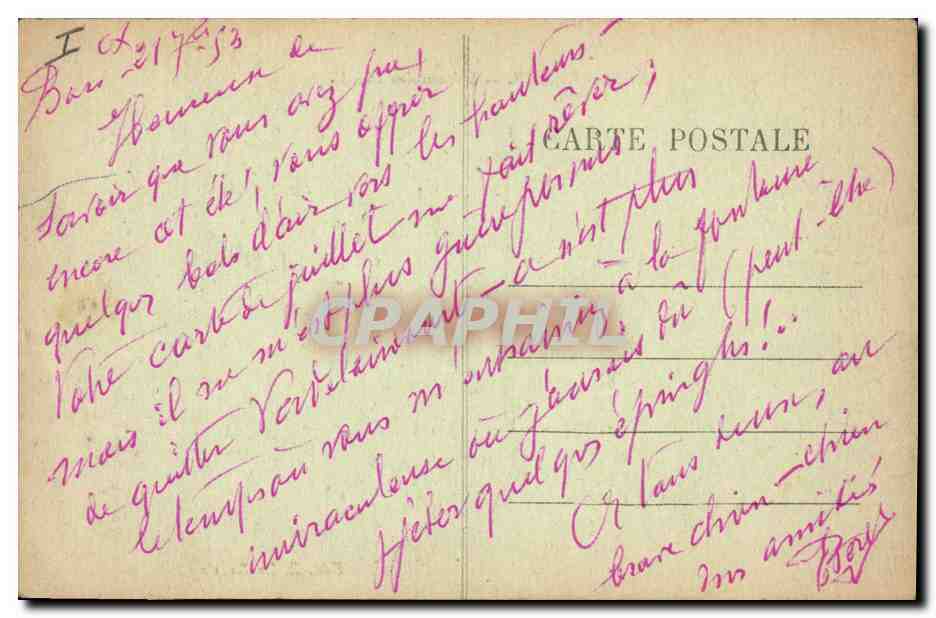 I
21 7 53
heureuse de
savoir que vous avez pu,
encore cet été, vous offrir
quelques bols d'air vers les hauteurs.
CARTE POSTALE
Votre carte de juillet me fait rêver;
mais il ne m'est plus guère permis
de quitter
n'est plus
le temps où vous m'emmeniez à la fontaine
miraculeuse où j'aurais dû (peut-être)
jeter quelques épingles!..
À tous deux, au
brave chien-chien
mes amitiés
CPAPHIL.com